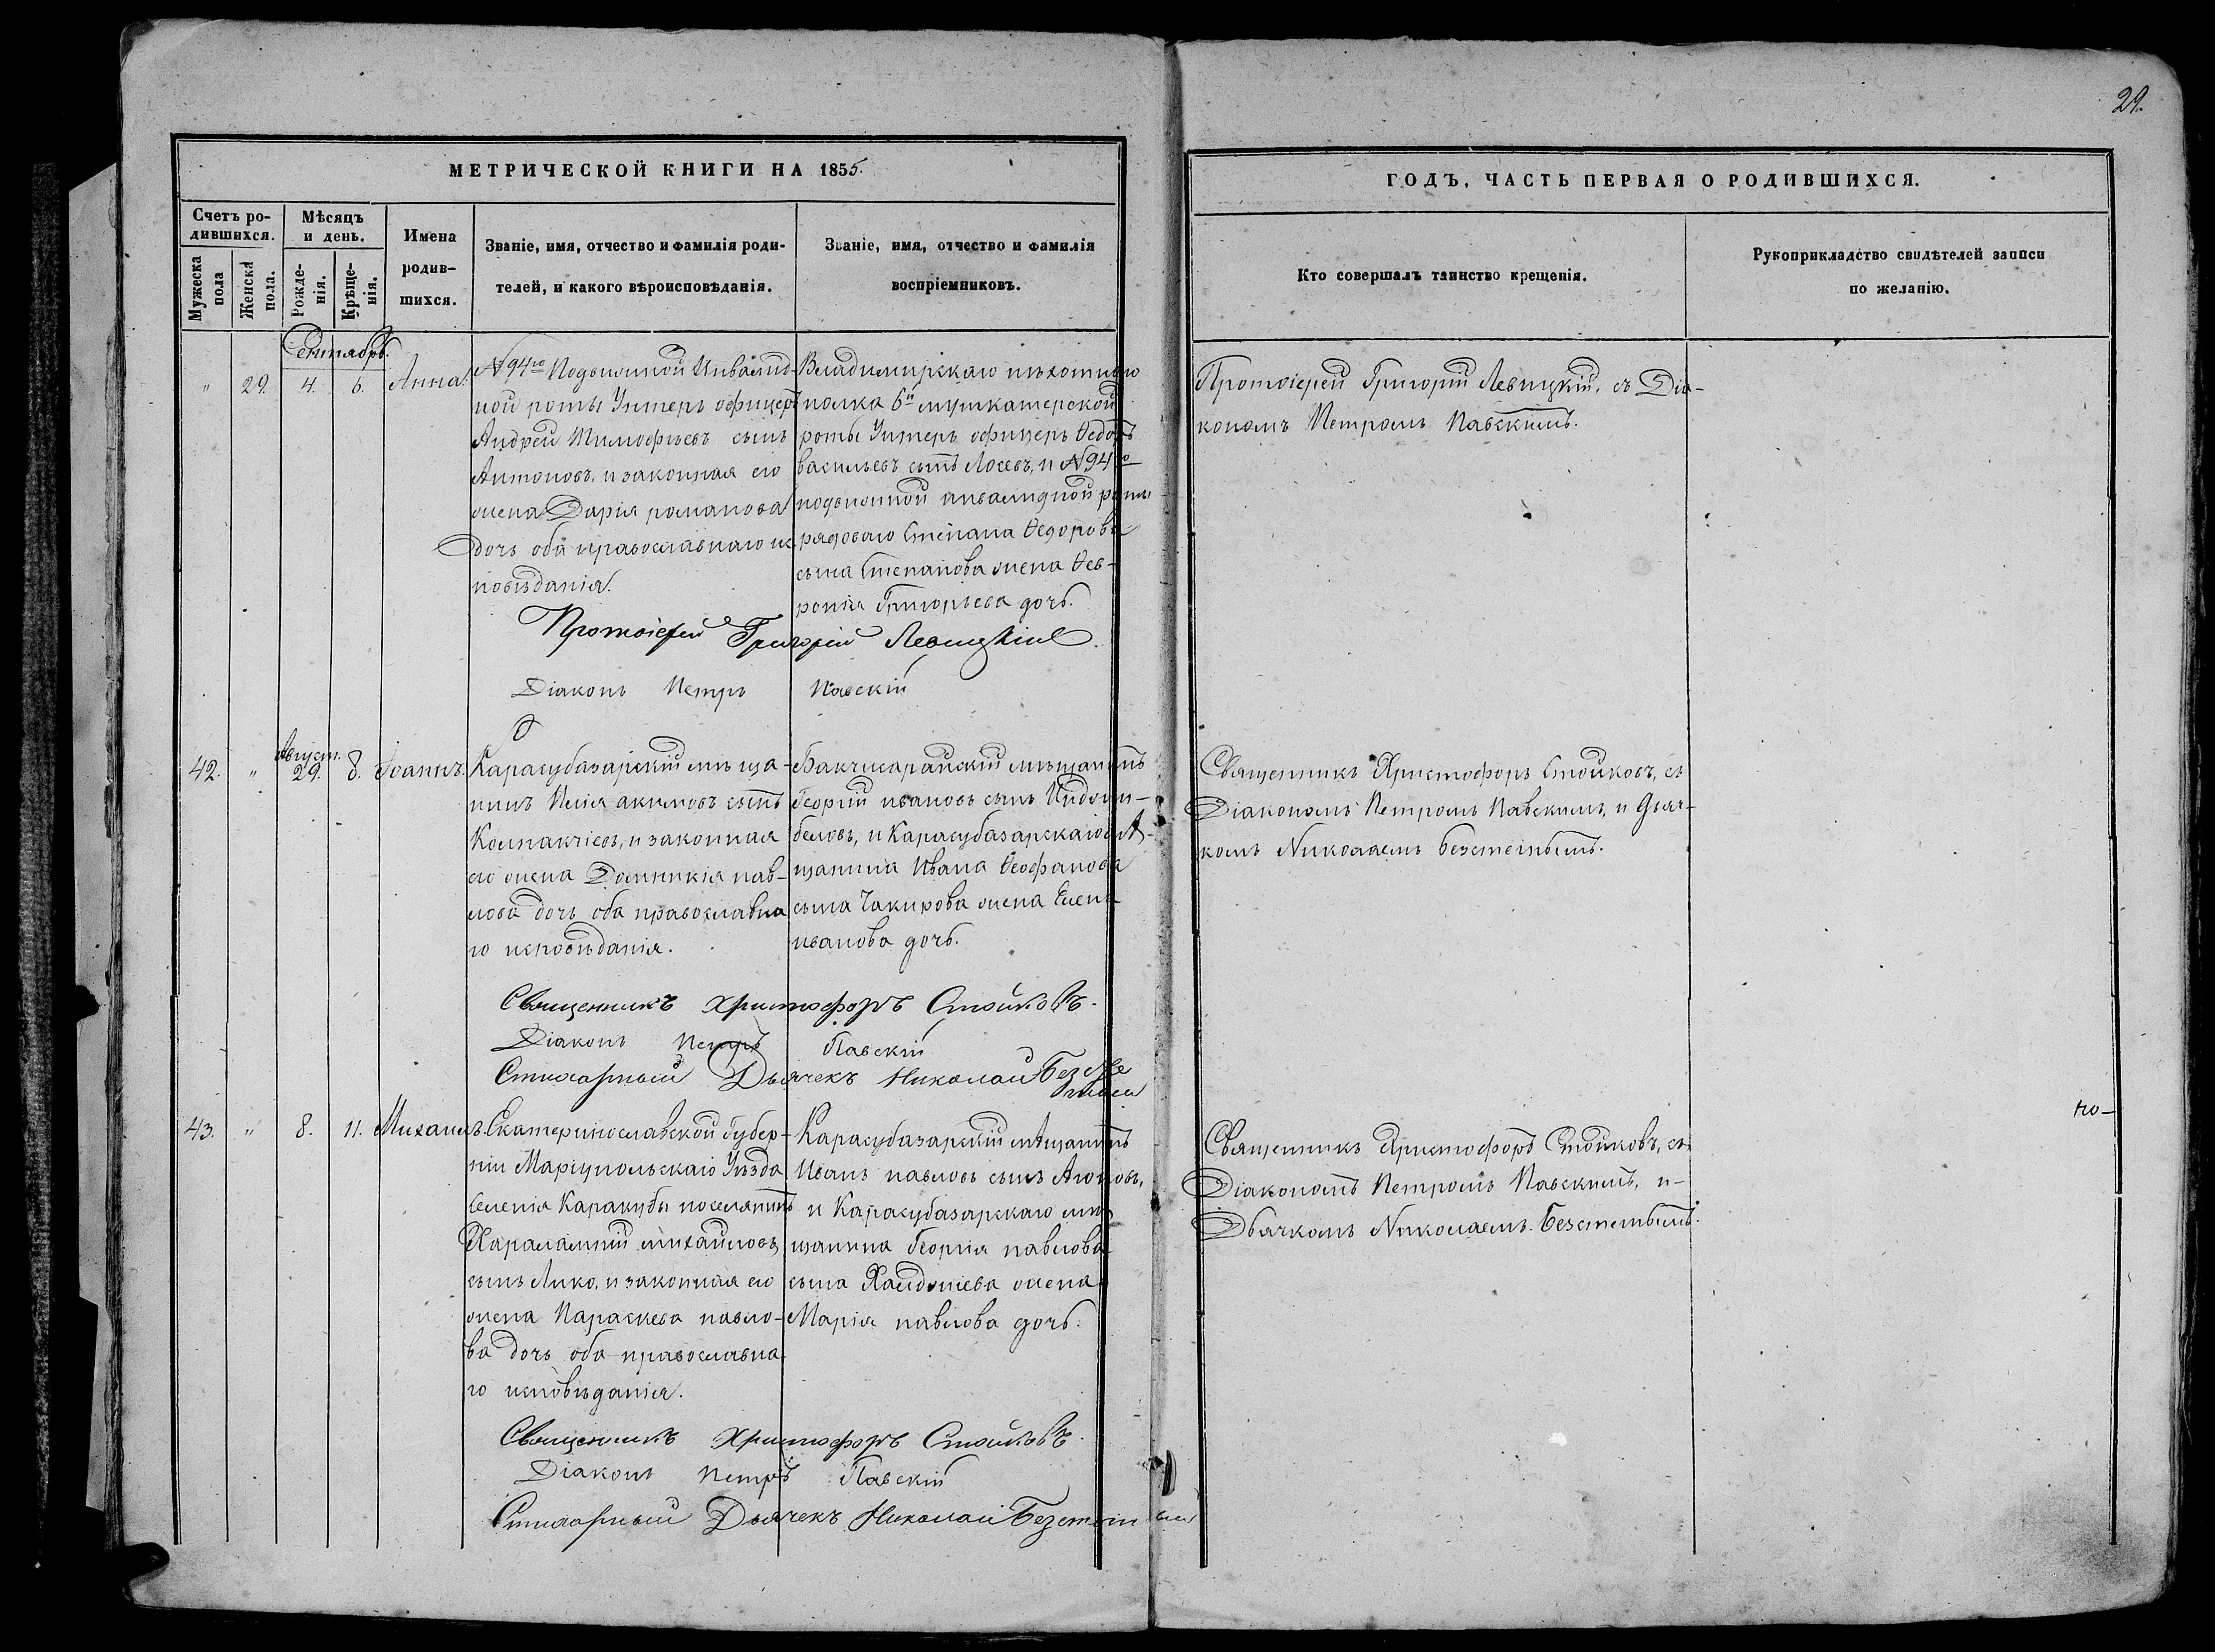 29.
МЕТРИЧЕСКОЙ КНИГИ НА 1855.
Счетъ ро-
дившихся.
Мужеска
пола
Женска
пола.
Мѣсяцъ
и день.
Рожде-
нія.
Крѣще-
нія.
Имена
родив-
шихся.
Званіе, имя, отчество и фамилія роди-
телей, и какого вѣроисповѣданія.
Званіе, имя, отчество и фамилія
воспріемниковъ.
ГОДЪ, ЧАСТЬ ПЕРВАЯ О РОДИВШИХСЯ.
Кто совершалъ таинство крещенія.
Рукоприкладство свидѣтелей записи
по желанію.
Сентябрь.
" 29. 4. 6. Анна.
№ 94го Подвижной Инвалид-
ной роты Унтеръ офицеръ
Андрей Тимофѣевъ сынъ
Антоновъ, и законная его
жена Дарія романова
дочь оба православнаго ис-
повѣданія.
Владимірскаго пѣхотнаго
полка 6й мушкатерской
роты Унтеръ офицеръ Ѳедотъ
васильевъ сынъ Лосевъ, и № 94го
подвижной инвалидной роты
рядоваго Степана Ѳедорова
сына Степанова жена Ѳев-
ронія Григорьева дочь.
Протоіерей Григорій Левицкій, съ Діа-
кономъ Петромъ Павскимъ.
Протоіерей Григорій Левицкій.
Діаконъ Петръ Павскій
Август.
42. " 29. 8. Іоаннъ.
Карасубазарскій мѣща-
нинъ Илія акимовъ сынъ
Колпакчіевъ, и законная
его жена Домникія пав-
лова дочь оба православна
го исповѣданія.
Бакчисарайскій мѣщанинъ
Георгій ивановъ сынъ
и Карасубазарскаго мѣ-
щанина Ивана Ѳеофанова
сына Чакирова жена Елена
иванова дочь.
Священникъ Христофоръ Стойковъ, съ
Діакономъ Петромъ Павскимъ, и Дьяч-
комъ Николаемъ
Священникъ Христофоръ Стойковъ.
Діаконъ Петръ Павскій
Стихарный Дьячекъ Николай
43. " 8. 11. Михаилъ.
Екатеринославской Губер-
ніи Маріупольскаго Уѣзда
селенія Каракубы поселянинъ
Харалампій михайловъ
сынъ Лико, и законная его
жена Параскева павло-
ва дочь оба православна-
го исповѣданія.
Карасубазарскій мѣщанинъ
Иванъ павловъ сынъ
и Карасубазарскаго мѣ-
щанина Георгія павлова
сына жена
Марія павлова дочь.
по-
Священникъ Христофоръ Стойковъ, съ
Діакономъ Петромъ Павскимъ, и-
Дьячкомъ Николаемъ
Священникъ Христофоръ Стойковъ.
Діаконъ Петръ Павскій
Стихарный Дьячекъ Николай